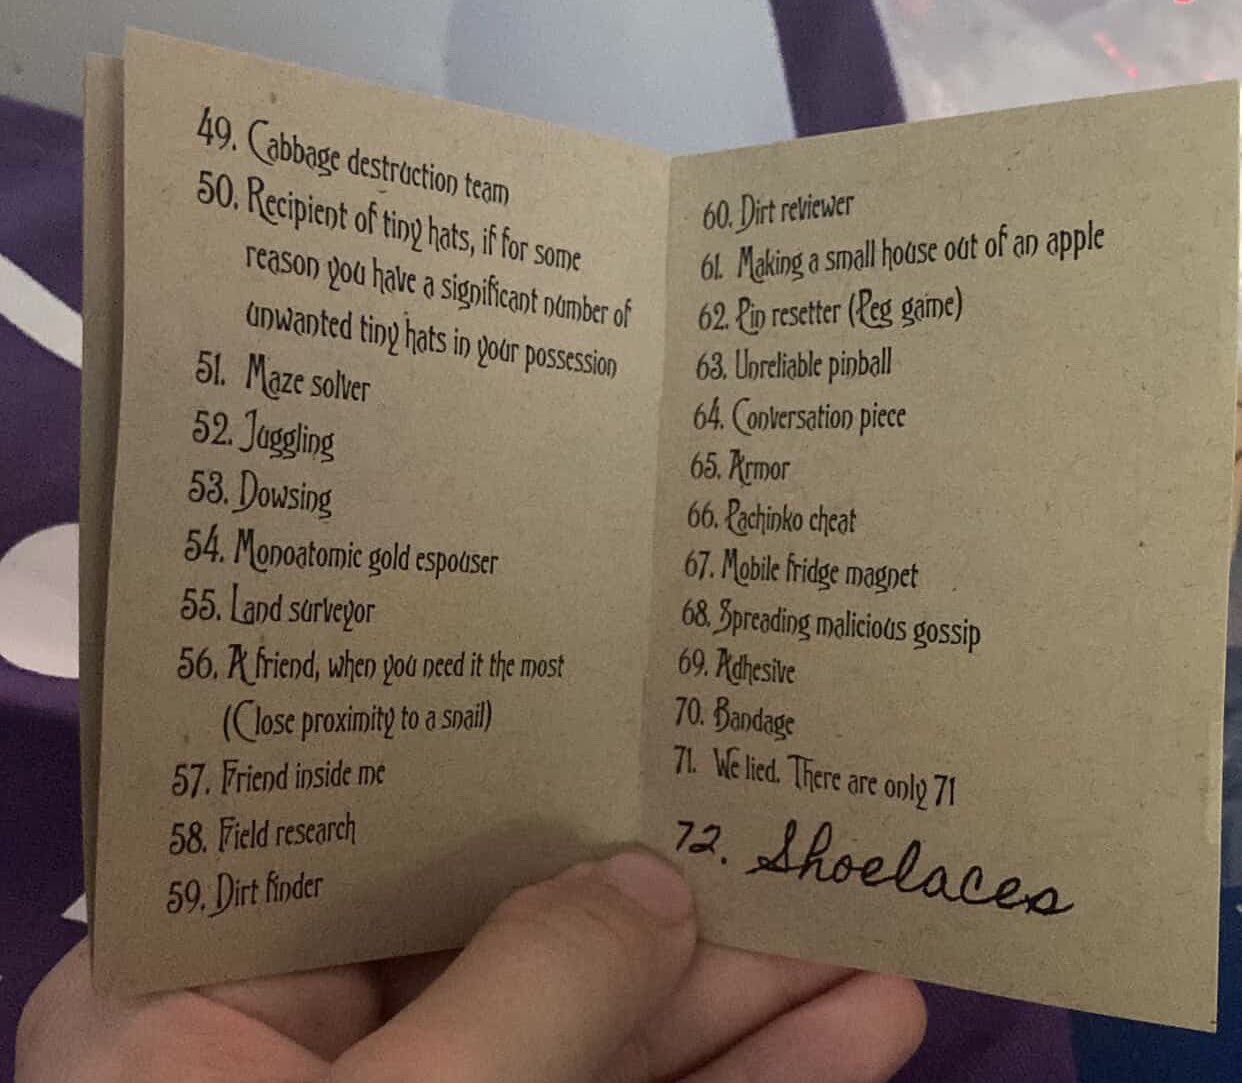 49. Cabbage destruction team
50. Recipient of tiny hats, if for some
reason you have a significant number of
unwanted tiny hats in your possession
51. Maze solver
52. Juggling
53. Dowsing
54. Monoatomic gold espouser
55. Land surveyor
56. A friend, when you need it the most
(Close proximity to a snail)
57. Friend inside me
58. Field research
59. Dirt finder
60. Dirt reviewer
61. Making a small house out of an apple
62. Pin resetter (Peg game)
63. Unreliable pinball
64. Conversation piece
65. Armor
66. Pachinko cheat
67. Mobile fridge magnet
68. Spreading malicious gossip
69. Adhesive
70. Bandage
71. We lied. There are only 71
72. Shoelaces